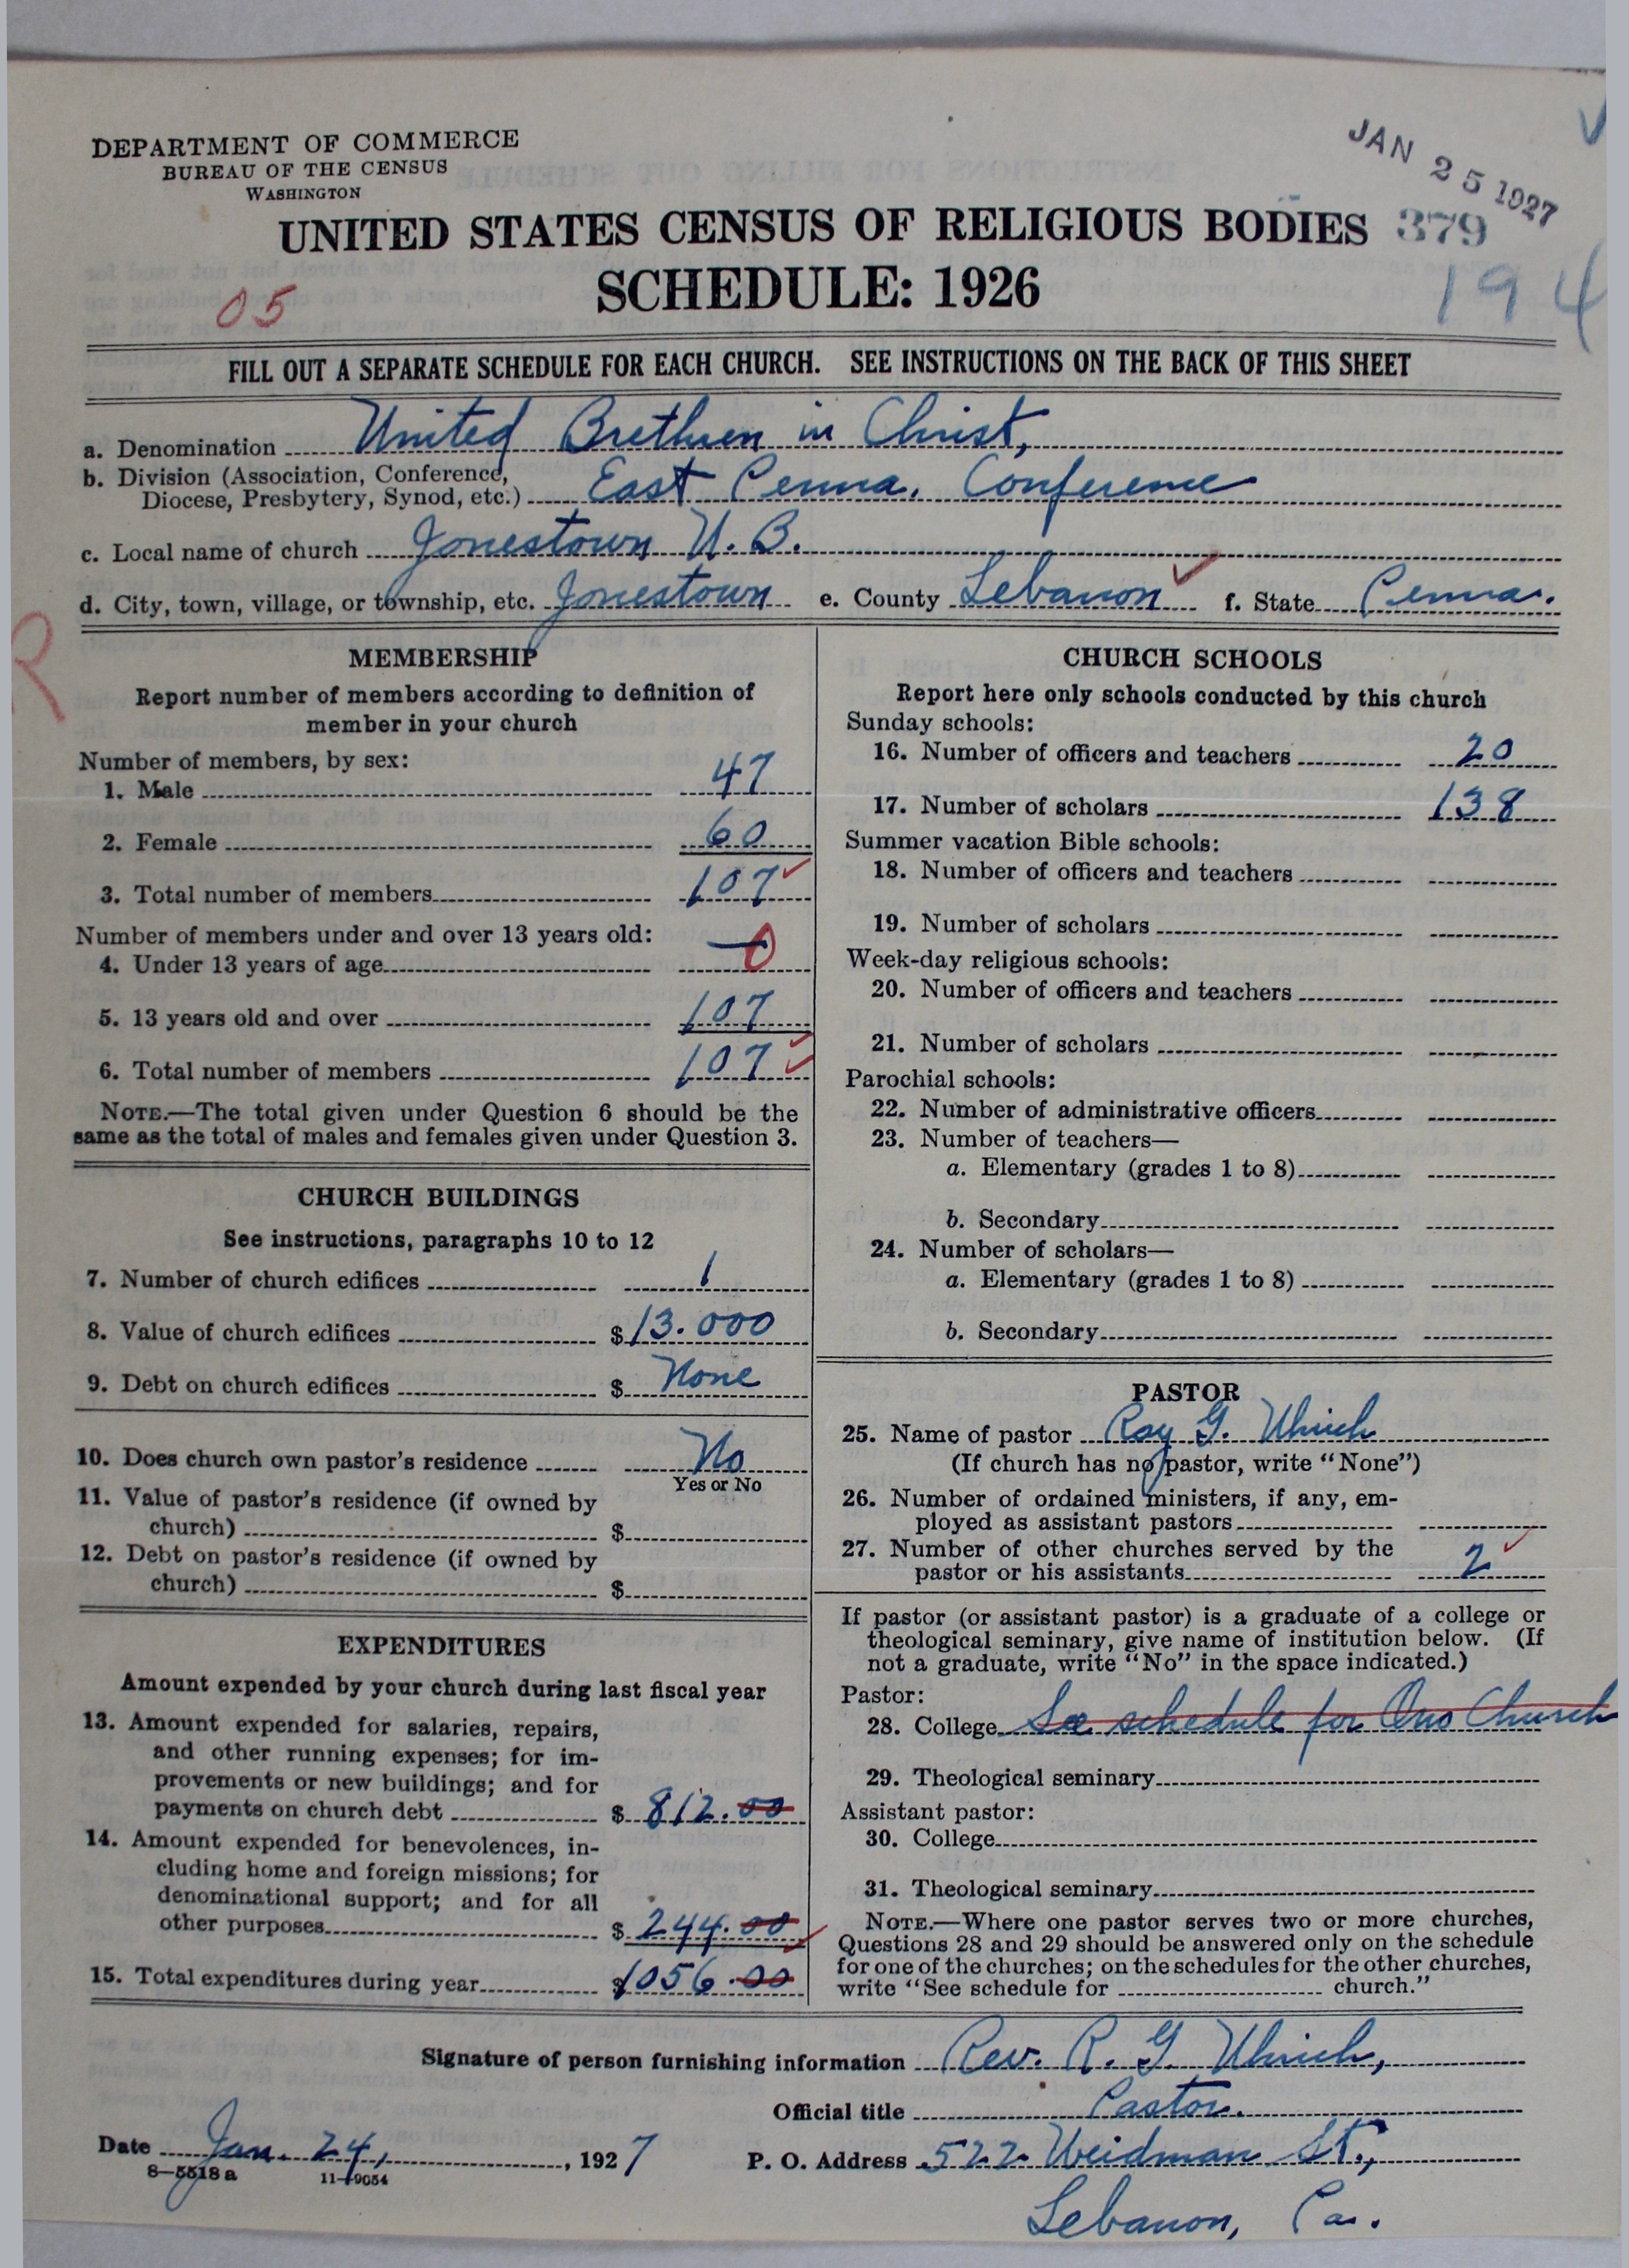 DEPARTMENT OF COMMERCE
BUREAU OF THE CENSUS
WASHINGTON
JAN 25 1927
UNITED STATES CENSUS OF RELIGIOUS BODIES 379
SCHEDULE: 1926
05
194
FILL OUT A SEPARATE SCHEDULE FOR EACH CHURCH. SEE INSTRUCTIONS ON THE BACK OF THIS SHEET
a. Denomination United Brethren in Christ,
b. Division (Association, Conference,
Diocese, Presbytery, Synod, etc.) East Penna. Conference
c. Local name of church Jonestown U. B.
d. City, town, village, or township, etc. Jonestown e. County Lebanon f. State Penna.
R
MEMBERSHIP
Report number of members according to definition of
member in your church
Number of members, by sex:
1. Male 47
2. Female 60
3. Total number of members 107
Number of members under and over 13 years old:
4. Under 13 years of age 0
5. 13 years old and over 107
6. Total number of members 107
NOTE.—The total given under Question 6 should be the
same as the total of males and females given under Question 3.
CHURCH BUILDINGS
See instructions, paragraphs 10 to 12
7. Number of church edifices 1
8. Value of church edifices $13.000
9. Debt on church edifices $ None
10. Does church own pastor's residence No
Yes or No
11. Value of pastor's residence (if owned by
church) $
12. Debt on pastor's residence (if owned by
church) $
EXPENDITURES
Amount expended by your church during last fiscal year
13. Amount expended for salaries, repairs,
and other running expenses; for im-
provements or new buildings; and for
payments on church debt $ 812.00
14. Amount expended for benevolences, in-
cluding home and foreign missions; for
denominational support; and for all
other purposes $ 244.00
15. Total expenditures during year $1056.00
CHURCH SCHOOLS
Report here only schools conducted by this church
Sunday schools:
16. Number of officers and teachers 20
17. Number of scholars 138
Summer vacation Bible schools:
18. Number of officers and teachers
19. Number of scholars
Week-day religious schools:
20. Number of officers and teachers
21. Number of scholars
Parochial schools:
22. Number of administrative officers
23. Number of teachers—
a. Elementary (grades 1 to 8)
b. Secondary
24. Number of scholars—
a. Elementary (grades 1 to 8)
b. Secondary
PASTOR
25. Name of pastor Roy G. Ulrich
(If church has no pastor, write "None")
26. Number of ordained ministers, if any, em-
ployed as assistant pastors
27. Number of other churches served by the
pastor or his assistants 2
If pastor (or assistant pastor) is a graduate of a college or
theological seminary, give name of institution below. (If
not a graduate, write "No" in the space indicated.)
Pastor:
28. College See schedule for Ono Church
29. Theological seminary
Assistant pastor:
30. College
31. Theological seminary
NOTE.—Where one pastor serves two or more churches,
Questions 28 and 29 should be answered only on the schedule
for one of the churches; on the schedules for the other churches,
write "See schedule for church."
Signature of person furnishing information Rev. R. G. Ulrich,
Official title Pastor.
Date Jan. 24, 1927 P. O. Address 522 Weidman St.,
8—5518a 11—9054
Lebanon, Pa.